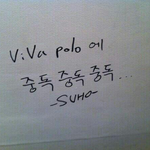 ViVa polo 에
중독 중독 중독...
-SUHO-